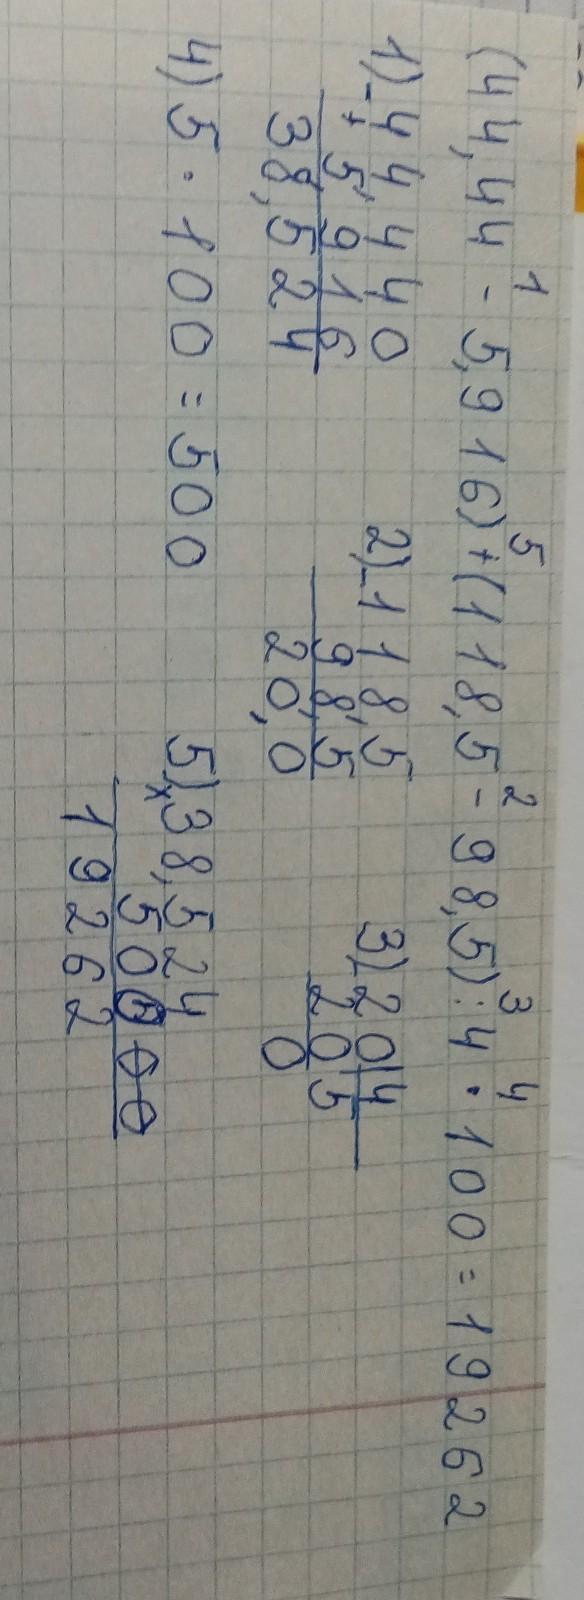 1 5 2 3 4
(44,44 - 5,916) + (118,5 - 98,5) : 4 · 100 = 19262
1) - 44,440
5,916
38,524
2) - 118,5
98,5
20,0
3) 20 | 4
20 5
0
4) 5 · 100 = 500
5) × 38,524
500
19262